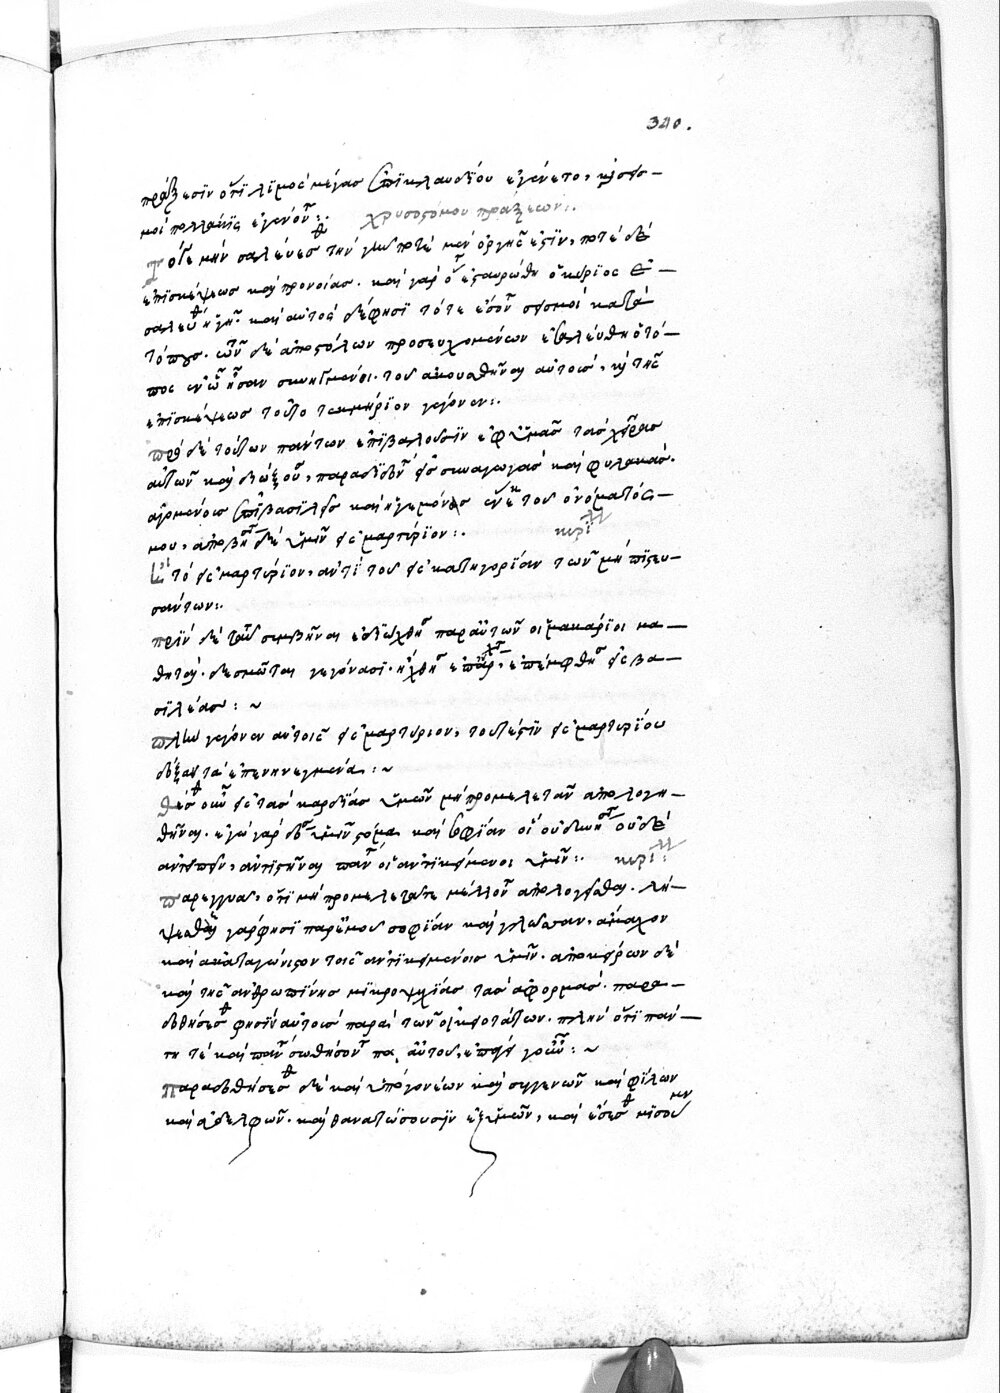 340.
πράξεσιν ὅτι λιμος μέγας ἐπι κλαυδίου ἐγένετο, κ σεισ-
μοι πολλάκις ἐγένοντο:. χρυσοστόμου πράξεων:.
Τότε μὴν σαλεύεσθ τὴν γῆν ποτὲ μεν ὀργῆς ἐστιν, ποτὲ δὲ
ἐπισκέψεως καὶ προνοίας. καὶ γὰρ ὅτε ἐσταυρώθη ὁ κύριος ἐ-
σαλεύθη ἡ γῆ. καὶ αὐτὸς δέ φησι τότε ἔσονται σεισμοὶ κατὰ
τόπους. τῶν δὲ ἀποστόλων προσευχομένων ἐσαλεύθη ὁ τό-
πος ἐν ᾧ ἦσαν συνηγμένοι. τοῦ ἀκουσθῆναι αὐτοὺς, κ τῆς
ἐπισκέψεως τοῦτο τεκμήριον γέγονεν:.
πρὸ δὲ τούτων πάντων ἐπιβαλοῦσιν ἐφ ὑμᾶς τὰς χεῖρας
αὐτῶν καὶ διώξουσι, παραδιδόντες εἰς συναγωγὰς καὶ φυλακάς.
ἀγομένους ἐπι βασιλεῖς καὶ ἡγεμόνας ἕνεκεν τοῦ ὀνόματός-
μου, ἀποβήσεται δὲ ὑμῖν εἰς μαρτύριον:. κυρί
τὸ εἰς μαρτύριον, ἀντὶ τοῦ εἰς κατηγορίαν τῶν μὴ πιστευ-
σάντων:.
πρὶν δὲ ταῦτα συμβῆναι ἐδιώχθησαν παρ αὐτῶν οἱ μακάριοι μα-
θηταί. δεσμῶται γεγόνασι. ἤχθησαν ἐπ ἄρχ, ἐπέμφθησαν εἰς βα-
σιλέας:~
πλὴν γέγονεν αὐτοις εἰς μαρτύριον, τουτέστιν εἰς μαρτυρίου
δόξαν τὰ ἐπενηνεγμένα:~
θέσθε οὖν εἰς τὰς καρδίας ὑμῶν μὴ προμελετᾶν ἀπολογη-
θῆναι. ἐγὼ γὰρ δώσω ὑμῖν στόμα καὶ σοφίαν ᾗ οὐ δυνήσονται οὐδὲ
ἀντειπεῖν, ἀντιστῆναι πάντες οἱ ἀντικείμενοι ὑμῖν:. κυρί
παρεγγυᾷ, ὅτι μὴ προμελετᾶτε μέλλοντες ἀπολογεῖσθαι. λή-
ψεσθαι γάρ φησι παρ ἐμοῦ σοφίαν καὶ γλῶσσαν, ἄμαχον
καὶ ἀκαταγώνιστον τοῖς ἀντικειμένοις ὑμῖν. ἀποκείρων δὲ
καὶ τῆς ἀνθρωπίνης μικροψυχίας τὰς ἀφορμάς. παρα-
δοθήσεσθ φησὶν αὐτοὺς παρὰ τῶν οἰκειοτάτων. πλὴν ὅτι πάν-
τη τὲ καὶ πάντως σωθήσονται πα αὐτοῦ, ἐπαγ :~
Παραδοθήσεσθ δὲ καὶ ὑπὸ γονέων καὶ συγγενῶν καὶ φίλων
καὶ ἀδελφῶν. καὶ θανατώσουσιν ἐξ ὑμῶν, καὶ ἔσεσθ μισουμεν